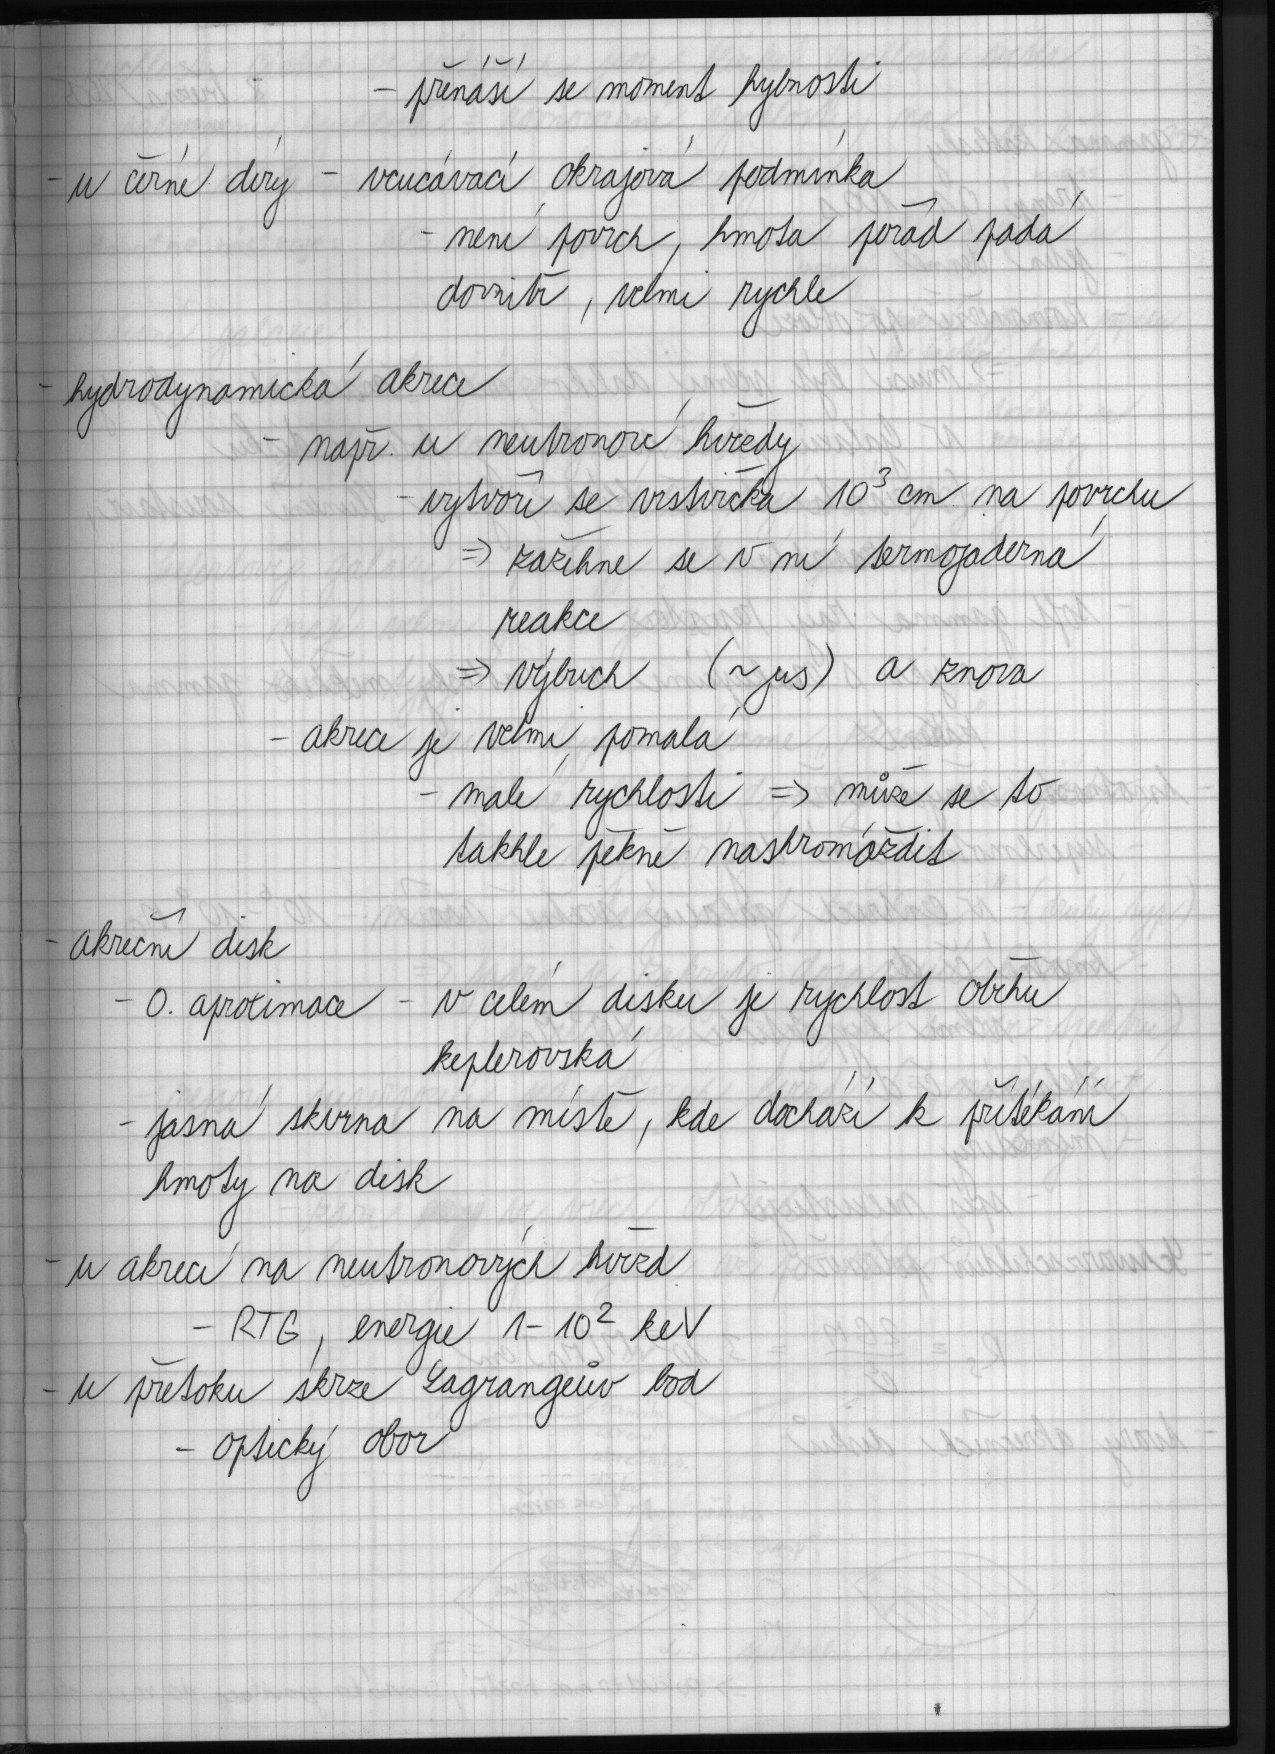 - přenáší se moment hybnosti
- u černé díry - vcucávací okrajová podmínka
- není povrch, hmota pořád padá
dovnitř, velmi rychle
- hydrodynamická akrece
- např. u neutronové hvězdy
- vytvoří se vrstvička 10³ cm na povrchu
⇒ zažehne se v ní termojaderná
reakce
⇒ výbuch (~μs) a znova
- akrece je velmi pomalá
- malé rychlosti ⇒ může se to
takhle pěkně nashromáždit
- akreční disk
- 0. aproximace - v celém disku je rychlost oběhu
keplerovská
- jasná skvrna na místě, kde dochází k přitékání
hmoty na disk
- u akrecí na neutronových hvězd
- RTG, energie 1-10² keV
- u přetoku skrze Lagrangeův bod
- optický obor